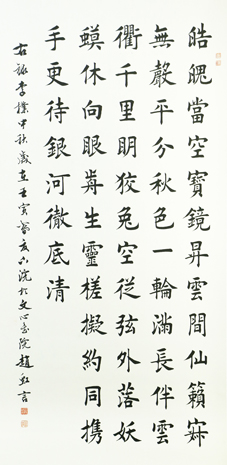 皓魄當空寶鏡昇雲間仙籟寂
無聲平分秋色一輪滿長伴雲
衢千里眀狡兔空從弦外落妖
蟆休向眼歬生靈槎擬約同携
手更待銀河徹底清
右録李樸中秋歲在壬寅於文心書院趙紅言